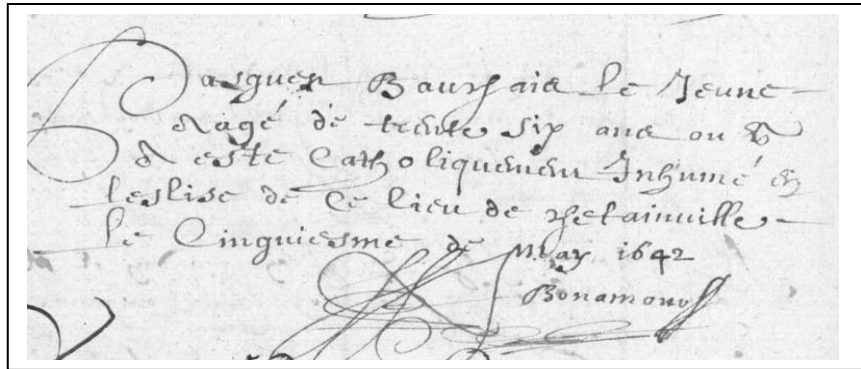 Pasquer Bauchais le Jeune
aagé de trente six ans ou en
a este Catholiquement Inhumé en
leglise de Ce lieu de
le Cinquiesme de May 1642
Bonamour